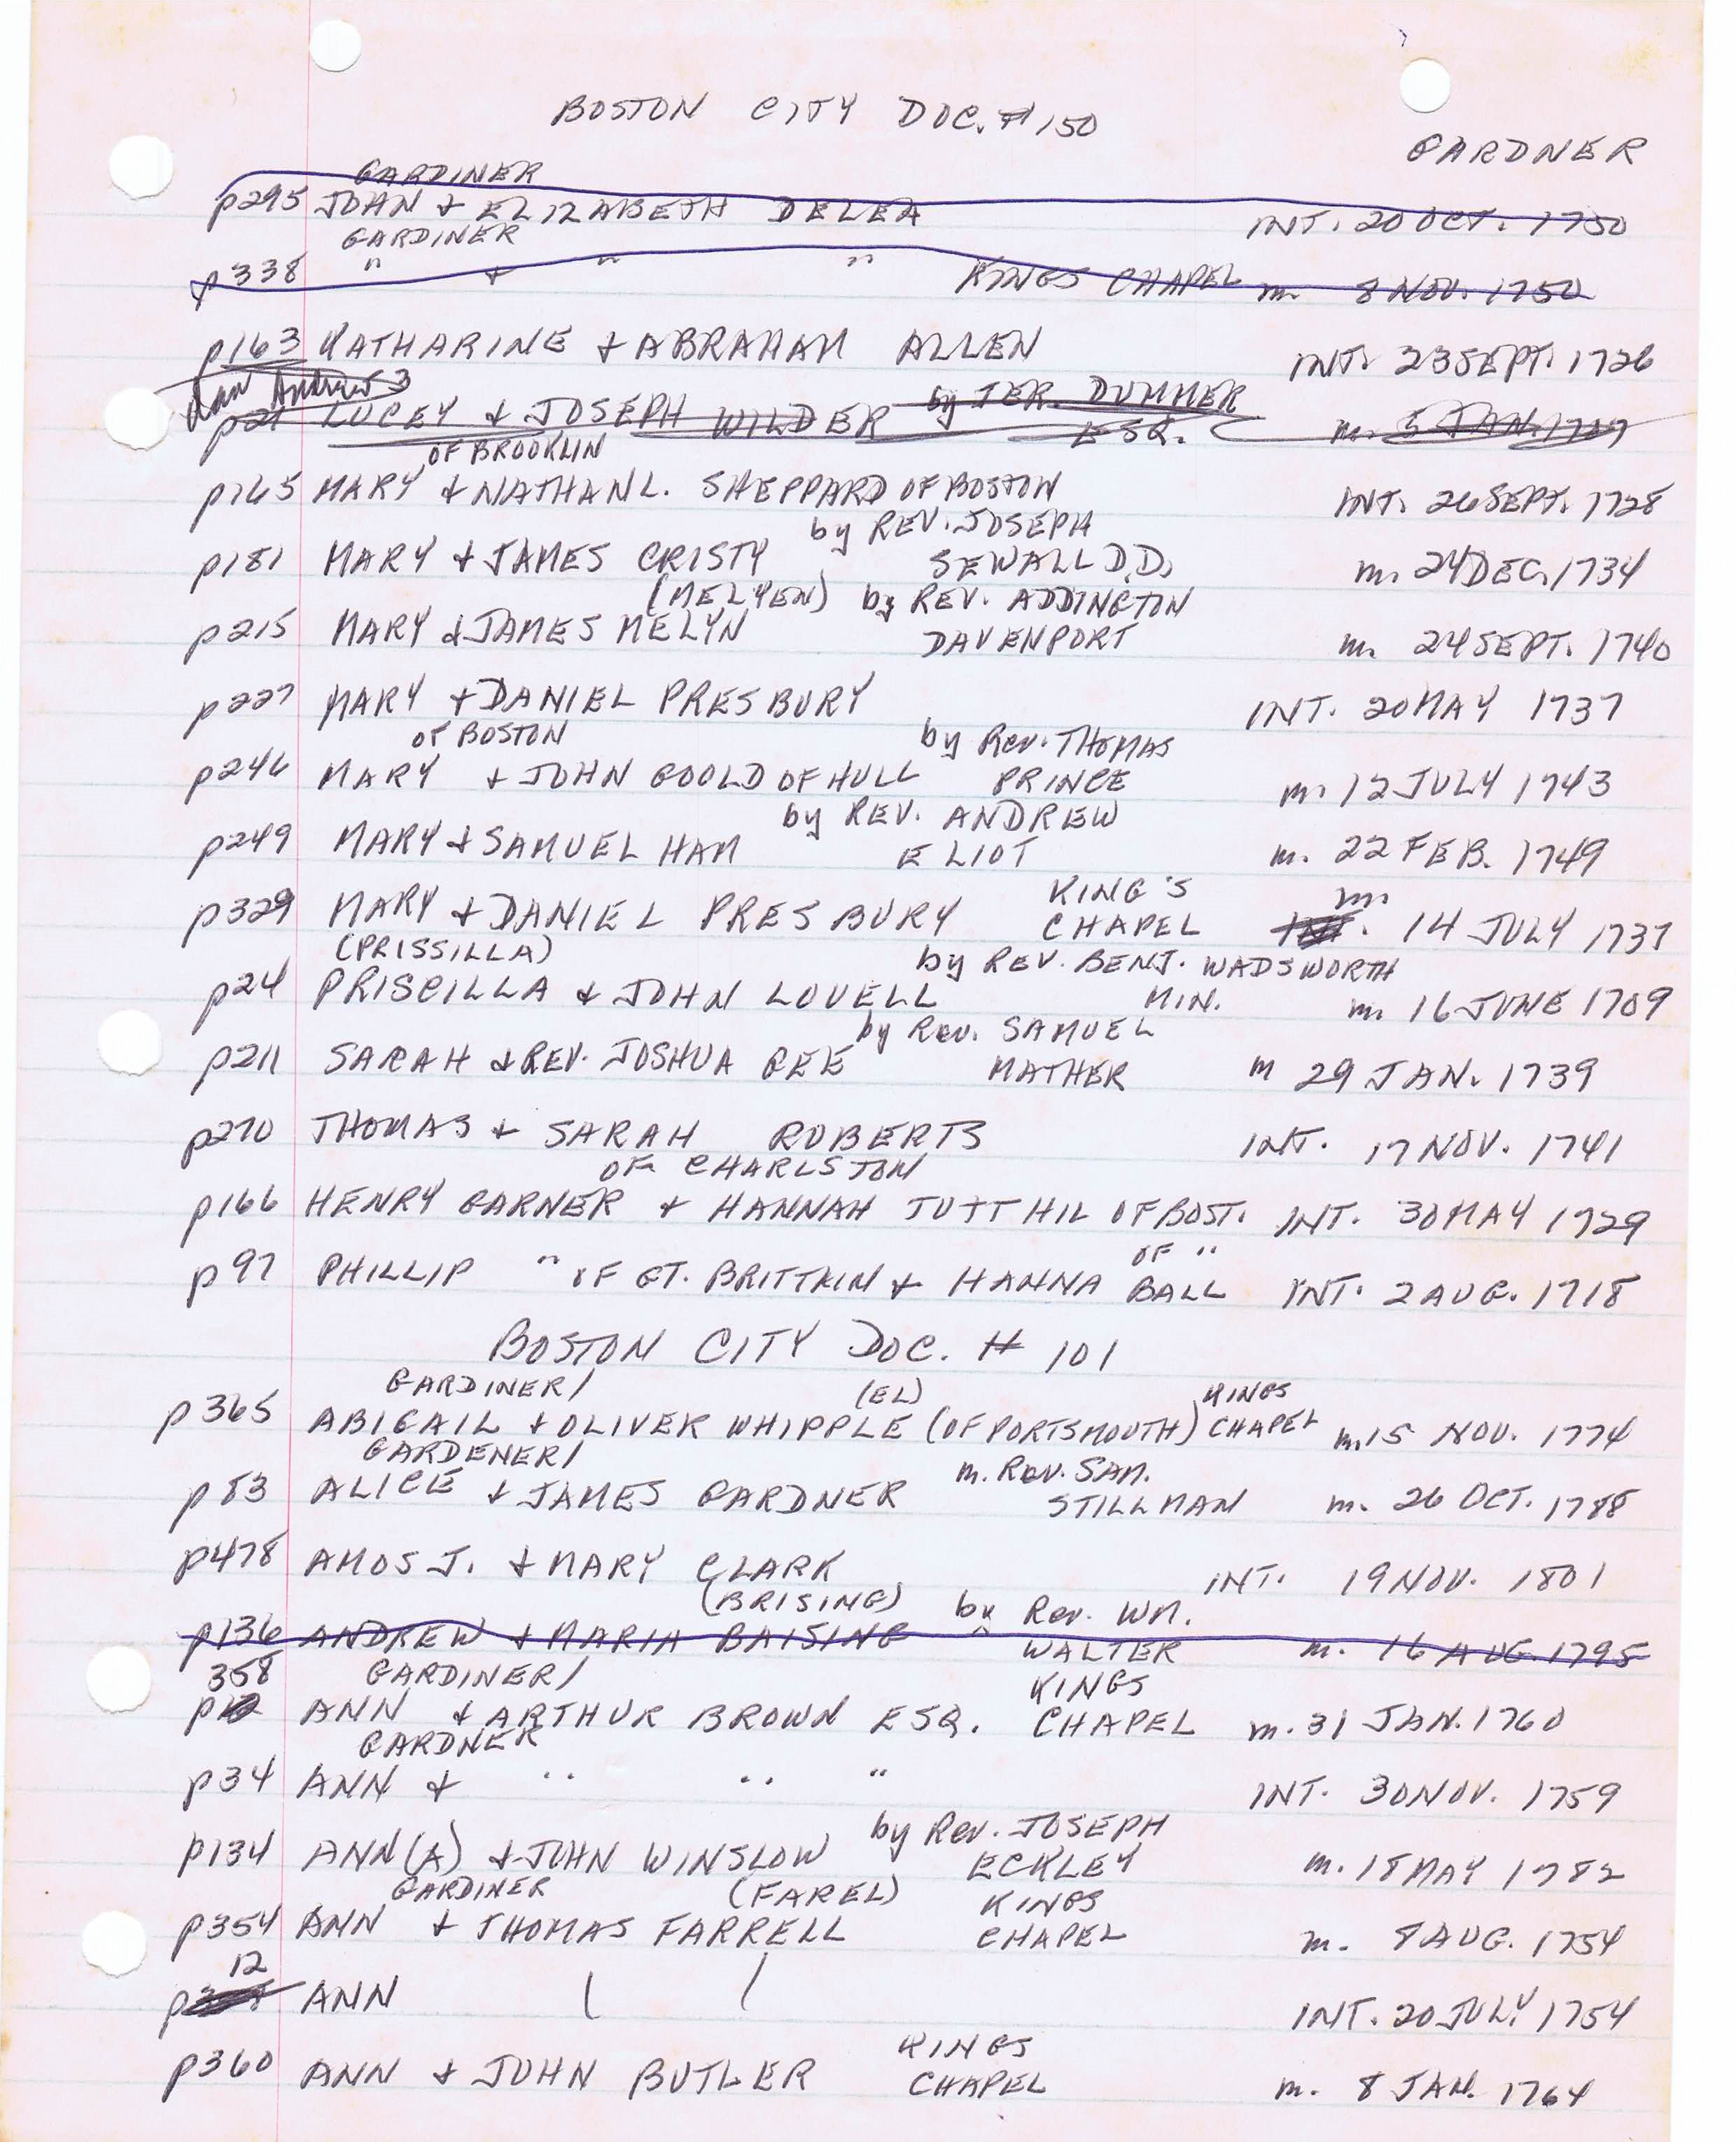 BOSTON CITY DOC. #150
GARDNER
GARDINER
p295 JOHN & ELIZABETH DELEA INT. 20 OCT. 1750
GARDINER
p338 " & " " KINGS CHAPEL m. 8 NOV. 1750
p163 KATHARINE & ABRAHAM ALLEN INT. 23 SEPT. 1726
Andrew 3
p21 LUCEY & JOSEPH WILDER by JER. DUMMER ESQ. m. 5 JAN. 1707
OF BROOKLIN
p165 MARY & NATHANL. SHEPPARD OF BOSTON INT. 26 SEPT. 1728
by REV. JOSEPH
p181 MARY & JAMES CRISTY SEWALL D.D. m. 24 DEC. 1734
(MELYEN) by REV. ADDINGTON
p215 MARY & JAMES MELYN DAVENPORT m. 24 SEPT. 1740
p227 MARY & DANIEL PRESBURY INT. 20 MAY 1737
OF BOSTON by Rev. THOMAS
p246 MARY & JOHN GOOLD OF HULL PRINCE m. 12 JULY 1743
by REV. ANDREW
p249 MARY & SAMUEL HAM ELIOT m. 22 FEB. 1749
KING'S m.
p329 MARY & DANIEL PRESBURY CHAPEL INT. 14 JULY 1737
(PRISSILLA) by REV. BENJ. WADSWORTH
p24 PRISCILLA & JOHN LOVELL MIN. m. 16 JUNE 1709
by Rev. SAMUEL
p211 SARAH & REV. JOSHUA GEE MATHER m 29 JAN. 1739
p270 THOMAS & SARAH ROBERTS INT. 17 NOV. 1741
OF CHARLSTON
p166 HENRY GARNER & HANNAH TUTTHIL OF BOST. INT. 30 MAY 1729
OF "
p97 PHILLIP " OF GT. BRITTKIN & HANNA BALL INT. 2 AUG. 1718
BOSTON CITY DOC. # 101
GARDINER/ (EL) KINGS
p365 ABIGAIL & OLIVER WHIPPLE (OF PORTSMOUTH) CHAPEL m. 15 NOV. 1774
GARDENER/ m. Rev. SAM.
p83 ALICE & JAMES GARDNER STILLMAN m. 26 OCT. 1788
p478 AMOS J. & MARY CLARK INT. 19 NOV. 1801
(BRISING) by Rev. WM.
p136 ANDREW & MARIA BAISING WALTER m. 16 AUG. 1795
358 GARDINER/ KINGS
p12 ANN & ARTHUR BROWN ESQ. CHAPEL m. 31 JAN. 1760
GARDNER
p34 ANN & " " " INT. 30 NOV. 1759
by Rev. JOSEPH
p134 ANN(A) & JOHN WINSLOW ECKLEY m. 18 MAY 1782
GARDINER (FAREL) KINGS
p354 ANN & THOMAS FARRELL CHAPEL m. 8 AUG. 1754
12
p ANN INT. 20 JULY 1754
KINGS
p360 ANN & JOHN BUTLER CHAPEL m. 8 JAN. 1764